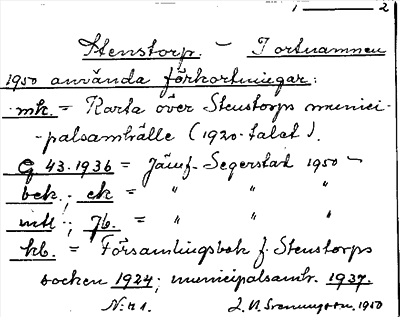 1 — 2
Stenstorp. - Tortnamnen
1950 använda förkortningar:
mk. = Karta över Stenstorps munici-
-palsamhälle (1920-talet).
G 43.1936 = Jämf. Segerstad 1950 -
bek.; ek = " " "
mtl.; Jb. = " " "
kb. = Församlingsbok f. Stenstorps
socken 1924; municipalsamh. 1937.
N:r 1. 1950